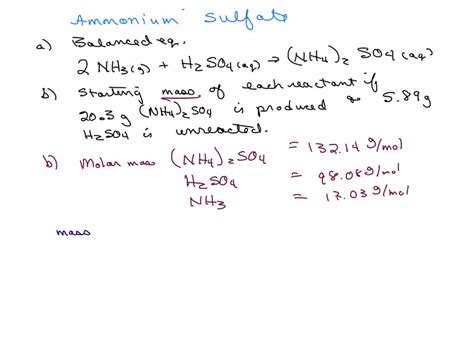 Ammonium Sulfate
a) Balanced eq.
2 NH3(g) + H2SO4(aq) → (NH4)2 SO4(aq)
b) Starting mass of each reactant if
20.3 g (NH4)2SO4 is produced & 5.89g
H2SO4 is unreacted.
b) Molar mass (NH4)2SO4 = 132.14 g/mol
H2SO4 = 98.08 g/mol
NH3 = 17.03 g/mol
mass